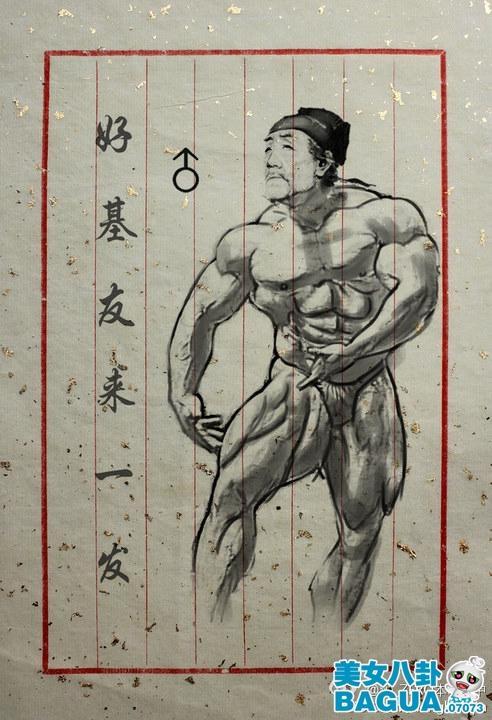 好基友来一发
美女八卦
BAGUA
.07073